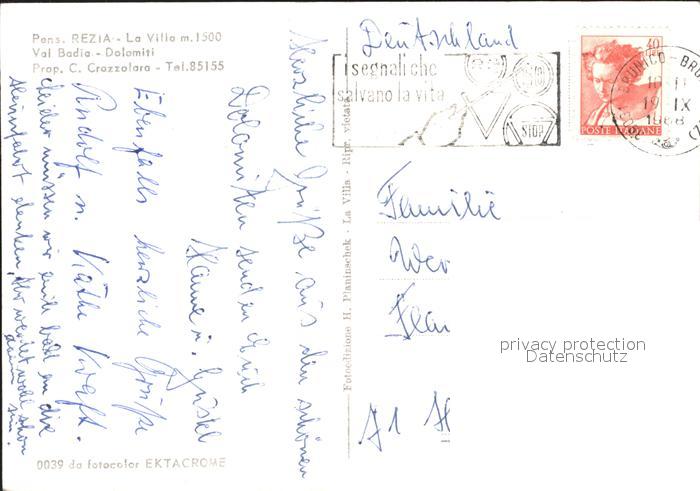 Pens. REZIA - La Villa m. 1500
Val Badia - Dolomiti
Prop. C. Crazzolara - Tel. 85155
Herzliche Grüße aus den schönen
Dolomiten senden Euch
Hanne u. Gustel
Ebenfalls herzliche Grüße
Rudolf u. Käthe Kraft.
Leider müssen wir bald an die
Heimfahrt denken, Ihr werdet wohl schon
daheim sein.
0039 da fotocolor EKTACROME
Fotoedizione H. Planinschek - La Villa - Ripr. vietata
Deutschland
i segnali che
salvano la vita
STOP
40
POSTE ITALIANE
BRUNICO - BRU
19 IX
1968
Familie
Wer
71 H
privacy protection
Datenschutz